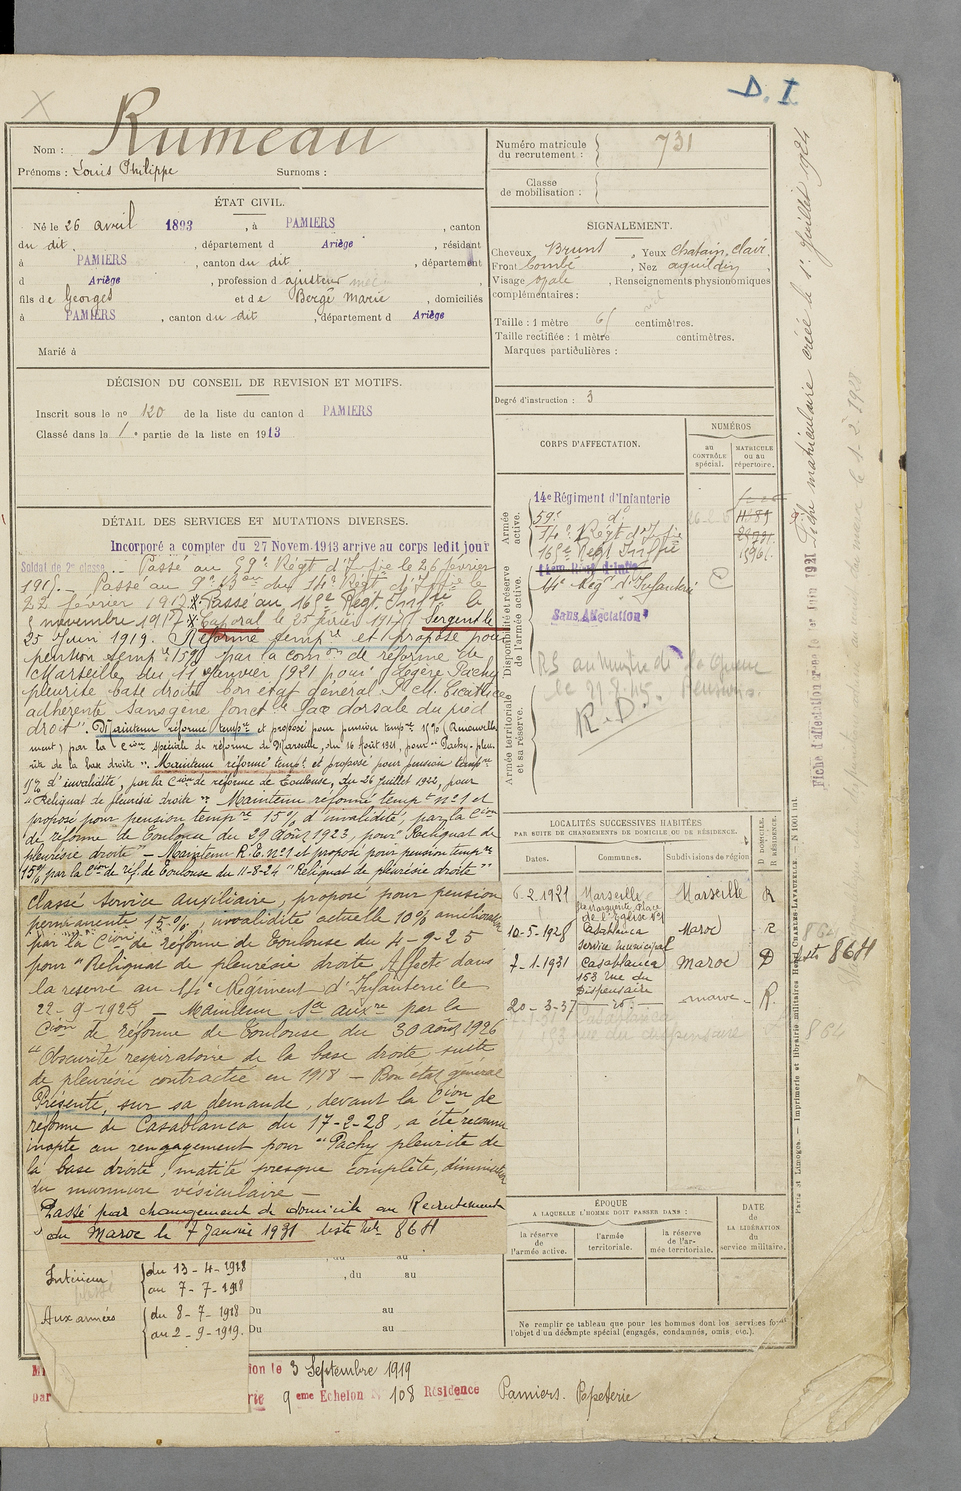 D. I
Nom : Rumeau
Prénoms : Louis Philippe Surnoms :
Numéro matricule du recrutement : 731
Classe de mobilisation :
ÉTAT CIVIL.
Né le 26 avril 1893, à PAMIERS, canton
du dit, département d Ariège, résidant
à PAMIERS, canton du dit, département
d Ariège, profession d ajusteur
fils de Georges et de Bergé Marie, domiciliés
à PAMIERS, canton du dit, département d Ariège
Marié à
SIGNALEMENT.
Cheveux Bruns, Yeux chatain, clair
Front bombé, Nez aquilin,
Visage ovale, Renseignements physionomiques
complémentaires :
Taille : 1 mètre 61 centimètres.
Taille rectifiée : 1 mètre centimètres.
Marques particulières :
Degré d'instruction : 3
DÉCISION DU CONSEIL DE REVISION ET MOTIFS.
Inscrit sous le no 120 de la liste du canton d PAMIERS
Classé dans la 1e partie de la liste en 1913
DÉTAIL DES SERVICES ET MUTATIONS DIVERSES.
Incorporé a compter du 27 Novem. 1913 arrive au corps ledit jour
Soldat de 2e classe. Passé au 59e Régt d'Inf.ie le 26 février
191 . Passé au 14e Régt d'Inf.ie le
22 février 191 * Passé au 165e Régt. Inf.ie le
novembre 1917 * Caporal le 25 février 191 Sergent le
25 Juin 1919. Réformé temp.re et proposé pour
pension temp.re 15% par la com.on de réforme de
Marseille du 11 Janvier 1921 pour légère Pachy
pleurite base droite bon état général P. M. Cicatrice
adhérente sans gène fonct.le face dorsale du pied
droit". Maintenu réformé temp.re et proposé pour pension temp.re 15% (Renouvelle
ment) par la Cion spéciale de réforme de Marseille, du 16 Août 1921, pour "Pachy-pleu
rite de la base droite". Maintenu réformé temp.re et proposé pour pension temp.re
15% d'invalidité, par la Cion de réforme de Toulouse, du 26 Juillet 1922, pour
"Reliquat de pleurésie droite". Maintenu réformé temp.re no1 et
proposé pour pension temp.re 15% d'invalidité, par la Cion
de réforme de Toulouse du 29 Août 1923, pour "Reliquat de
pleurésie droite" – Maintenu R.T. no1 et proposé pour pension temp.re
15% par la Cion de réf. de Toulouse du 11-8-24 "Reliquat de pleurésie droite"
Classé Service Auxiliaire, proposé pour pension
permanente 15%, invalidité actuelle 10% améliorée
par la Cion de Réforme de Toulouse du 4-9-25
pour "Reliquat de pleurésie droite. Affecté dans
la réserve au 14e Régiment d'Infanterie le
22-9-1925 – Maintenu Sce auxre par la
Cion de Réforme de Toulouse du 30 août 1926
"Obscurité respiratoire de la base droite suite
de pleurésie contractée en 1918 – Bon état général
Présenté, sur sa demande, devant la Cion de
réforme de Casablanca du 17-2-28, a été reconnu
inapte au rengagement pour "Pachy pleurite de
la base droite, matité presque complète, diminution
du murmure vésiculaire –
Passé par changement de domicile au Recrutement
du Maroc le 7 Janvier 1931 liste No 864
Intérieur du 13-4-1918
au 7-7-1918
Aux armées du 8-7-1918
au 2-9-1919.
, du au
Du au
Du au
ion le 3 Septembre 1919
par
9eme Echelon No 108 Résidence Pamiers. Papeterie
CORPS D'AFFECTATION.
NUMÉROS
au CONTRÔLE spécial.
MATRICULE OU AU répertoire.
Armée active.
14e Régiment d'Infanterie
59e do
14e Régt d'Inf.ie
165e Régt Inf.ie
Disponibilité et réserve de l'armée active.
14eme Régt d'Infie
14e Régt d'Infanterie
Sans Affectation
Armée territoriale et sa réserve.
R.D.
LOCALITÉS SUCCESSIVES HABITÉES
PAR SUITE DE CHANGEMENTS DE DOMICILE OU DE RÉSIDENCE.
Dates. Communes. Subdivisions de région D DOMICILE. R RÉSIDENCE.
6.2.1921 Marseille Ste Marguerite, Place de l'Eglise No1 Marseille R
10-5-1928 Casablanca Service municipal Maroc R
7-1-1931 Casablanca 153 rue du Dispensaire Maroc D
20-3-37 – do – Maroc – R.
liste 864
ÉPOQUE
A LAQUELLE L'HOMME DOIT PASSER DANS :
la réserve de l'armée active.
l'armée territoriale.
la réserve de l'armée territoriale.
DATE de LA LIBÉRATION du service militaire.
Ne remplir ce tableau que pour les hommes dont les services font
l'objet d'un décompte spécial (engagés, condamnés, omis, etc.).
Fiche matriculaire créée le 1er Juillet 1924
Paris et Limoges. — Imprimerie et librairie militaires Henri CHARLES-LAVAUZELLE.